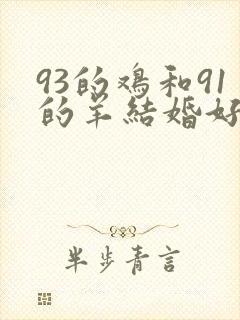 93的鳮和91
的羊結婚好
半步青言